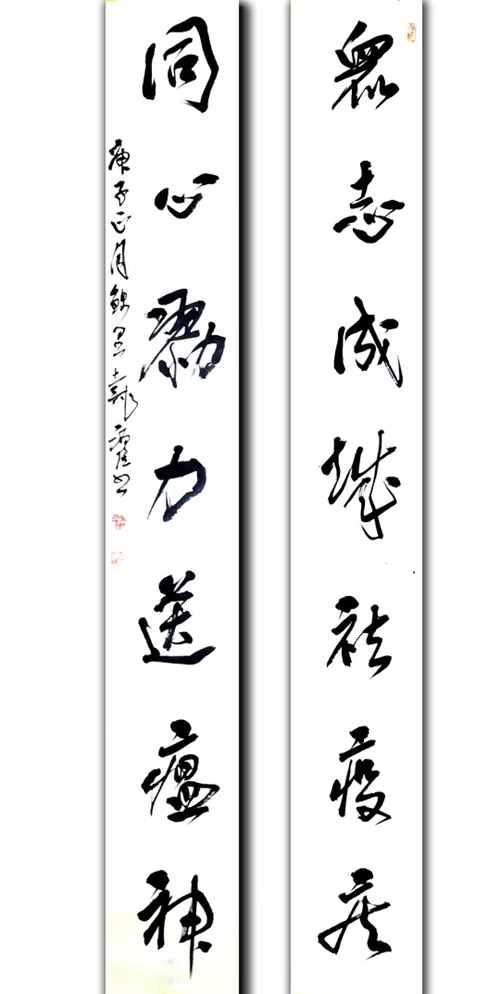 衆志成城祛疫疾
同心勠力送瘟神
庚子正月